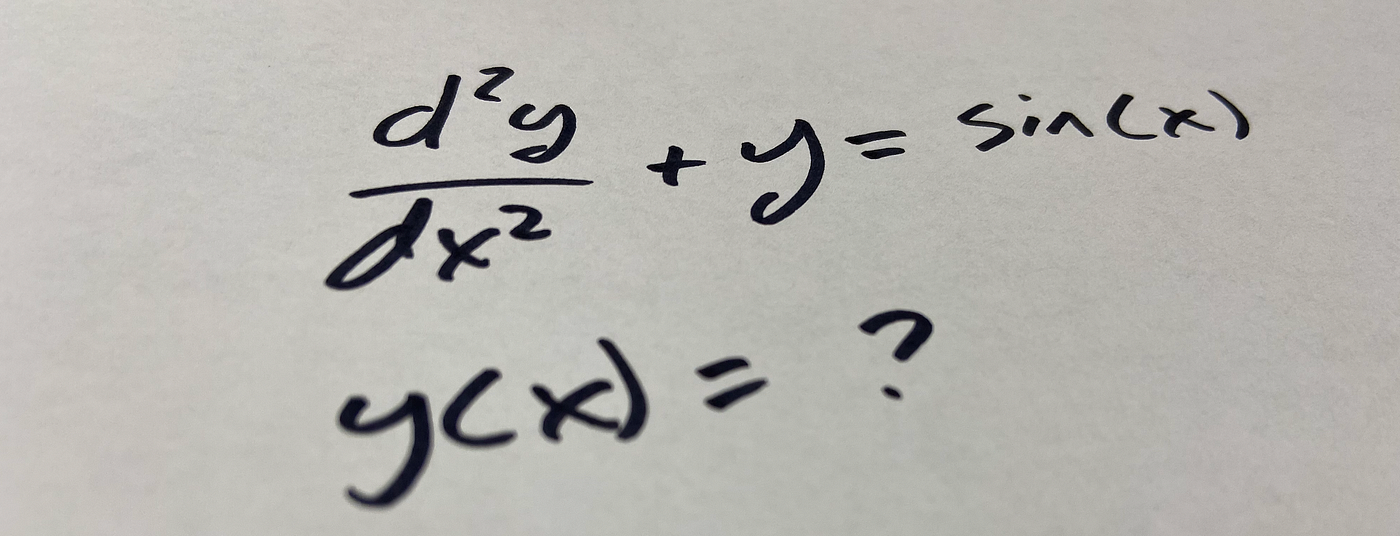 d²y/dx² + y = sin(x)
y(x) = ?